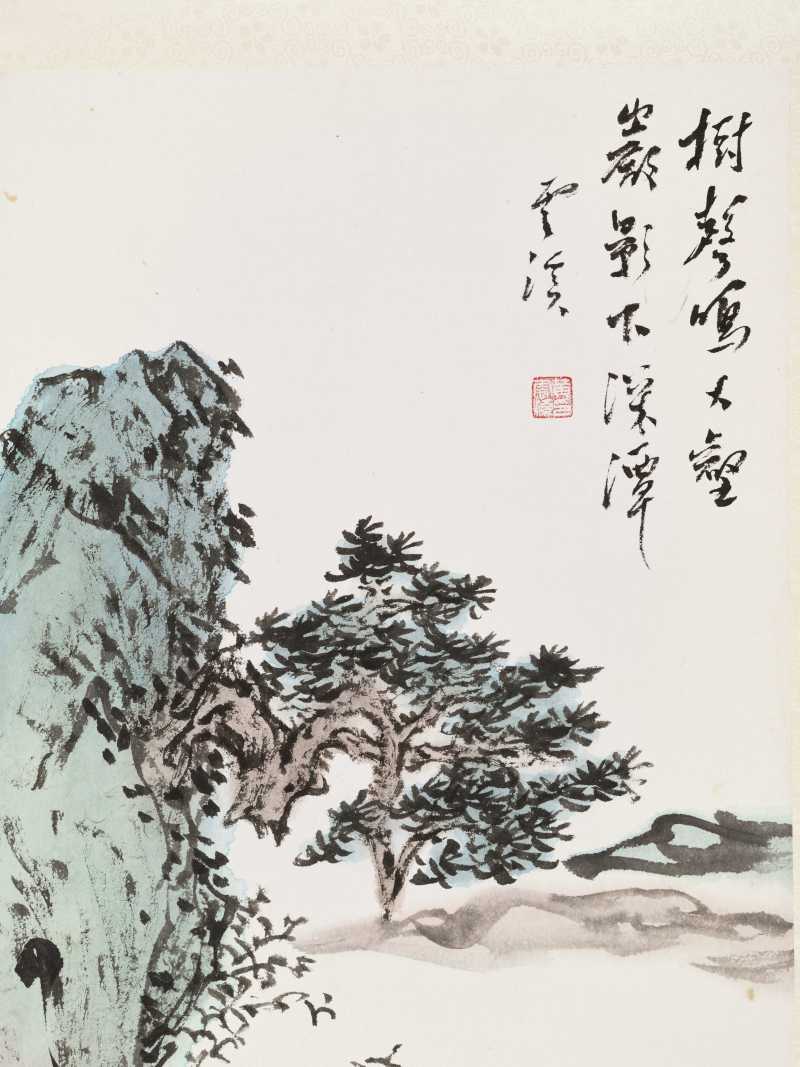 樹聲鳴大壑
巖影下深潭
雲溪